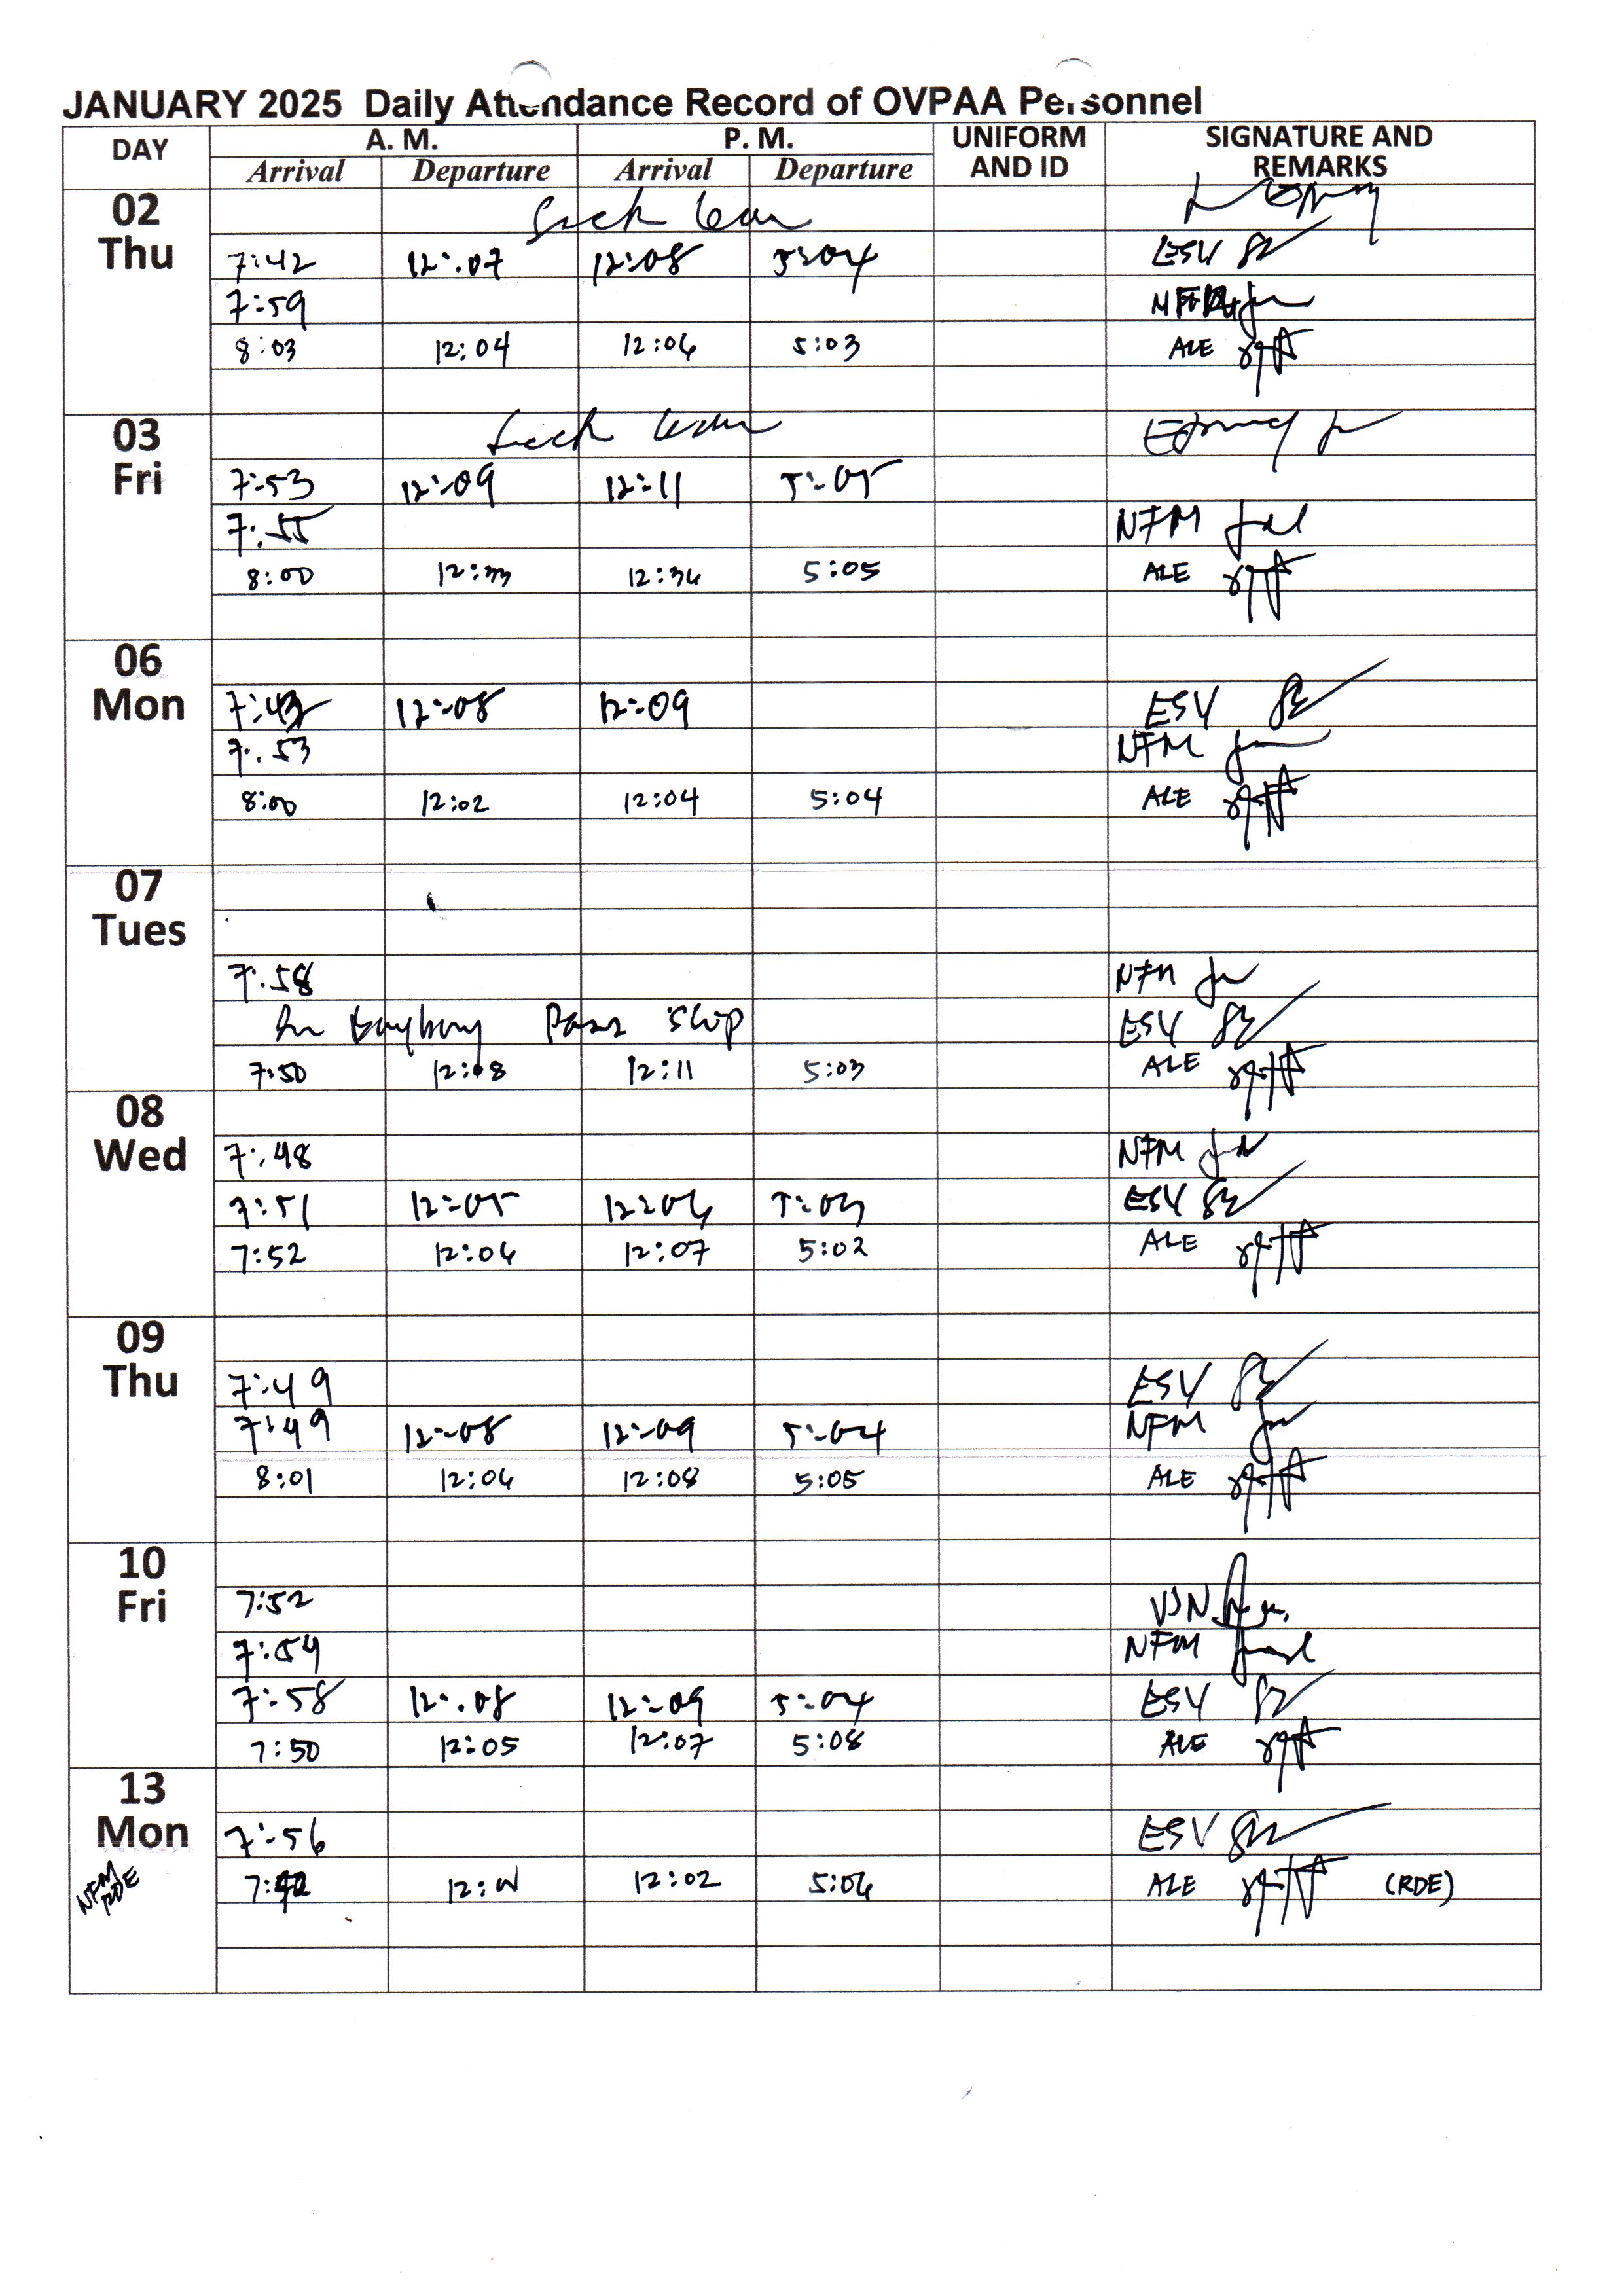 JANUARY 2025 Daily Attendance Record of OVPAA Personnel
DAY A. M. P. M. UNIFORM AND ID SIGNATURE AND REMARKS
Arrival Departure Arrival Departure
02 Thu
Sick leave
7:42 12:07 12:08 5:04 ESV
7:59
8:03 12:04 12:06 5:03 ALE
03 Fri
Sick leave
7:53 12:09 12:11 5:05
7:55 NFM
8:00 12:33 12:36 5:05 ALE
06 Mon
7:43 12:08 12:09 ESV
7:53 NFM
8:00 12:02 12:04 5:04 ALE
07 Tues
7:58 NFM
Pass Slip ESV
7:50 12:08 12:11 5:03 ALE
08 Wed
7:48 NFM
7:51 12:05 12:06 5:03 ESV
7:52 12:06 12:07 5:02 ALE
09 Thu
7:49 ESV
7:49 12:08 12:09 5:04 NFM
8:01 12:06 12:08 5:05 ALE
10 Fri
7:52 VJN
7:54 NFM
7:58 12:08 12:09 5:04 ESV
7:50 12:05 12:07 5:08 ALE
13 Mon
7:56 ESV
NFM RDE
12:02 5:06 ALE (RDE)